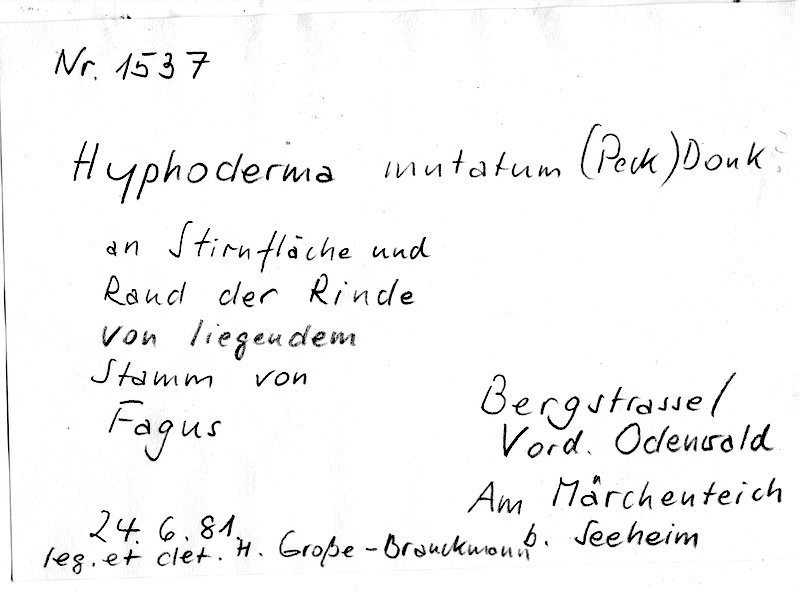 Nr. 1537
Hyphoderma mutatum (Peck) Donk
an Stirnfläche und
Rand der Rinde
von liegendem
Stamm von
Fagus
Bergstrasse/
Vord. Odenwald
Am Märchenteich
b. Seeheim
24. 6. 81.
leg. et det. H. Große-Brauckmann